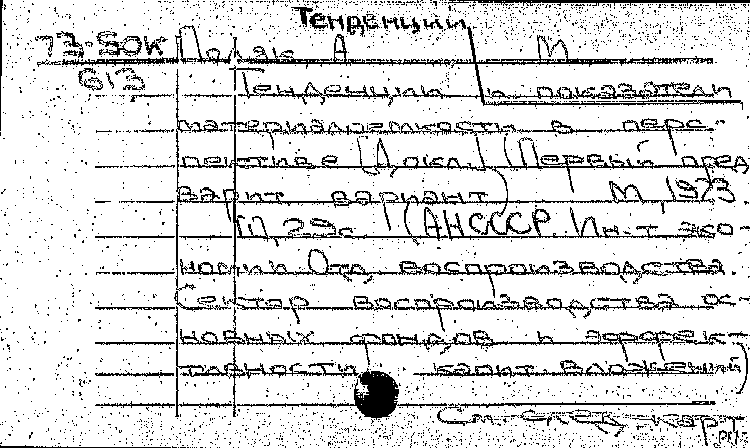 Тенденций
73-50К Поляк А М
613 Тенденции и показатели
материалоемкости в перс-
пективе [Докл.] (Первый пред
варит. вариант) М, 1973.
29с (АНСССР. Ин-т эко-
номики Отд. воспроизводства.
Сектор воспроизводства ос-
новных фондов и эффект-
тивности капит. вложений)
См. след. карт